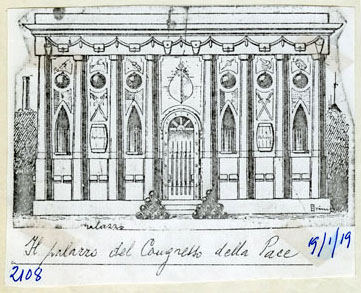 palazzo
Il palazzo del Congresso della Pace
19/1/19
2108